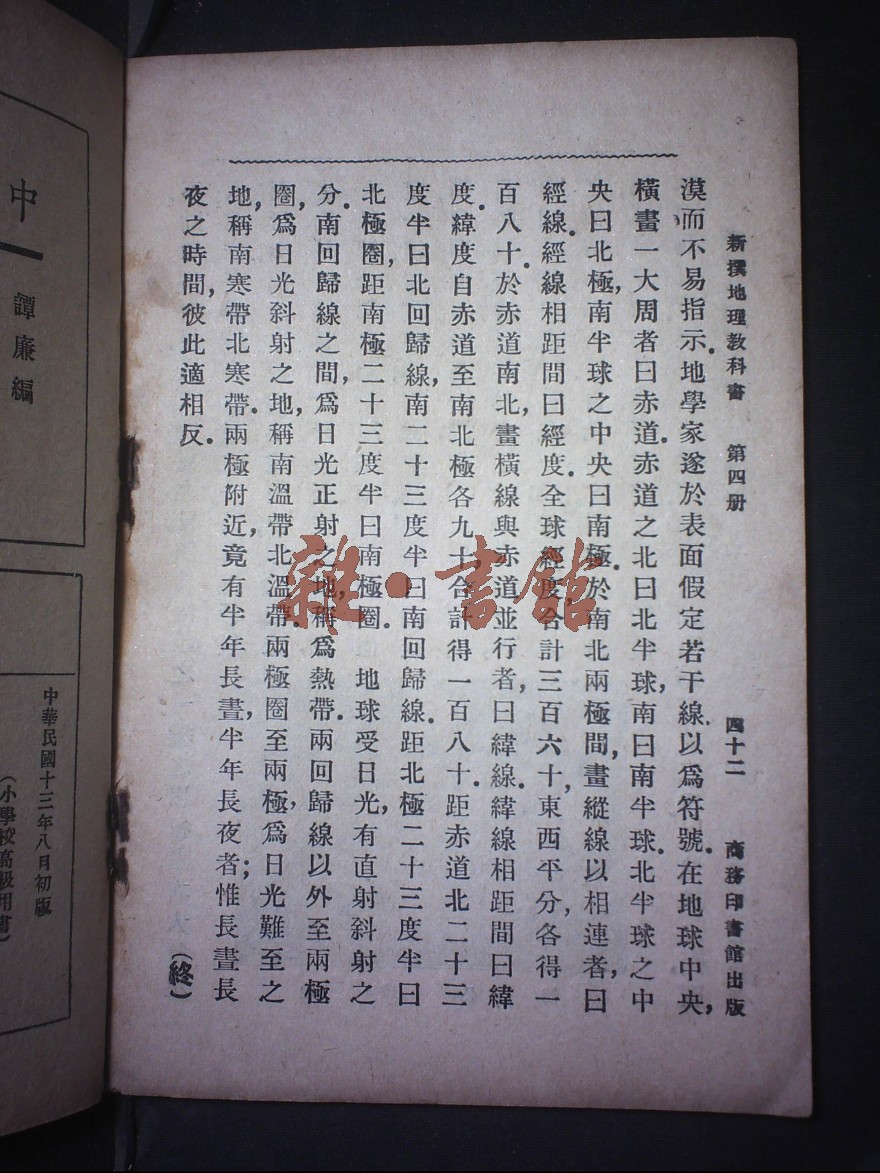 新撰地理教科書 第四册 四十二 商務印書館出版
漠而不易指示。地學家遂於表面假定若干線、以爲符號。在地球中央、
橫畫一大周者曰赤道。赤道之北曰北半球、南曰南半球。北半球之中
央曰北極、南半球之中央曰南極。於南北兩極間、畫縱線以相連者、曰
經線。經線相距間曰經度。全球經度、合計三百六十、東西平分、各得一
百八十。於赤道南北、畫橫線與赤道並行者、曰緯線。緯線相距間曰緯
度。緯度自赤道至南北極各九十、合計得一百八十。距赤道北二十三
度半曰北回歸線、南二十三度半曰南回歸線。距北極二十三度半曰
北極圈、距南極二十三度半曰南極圈。 地球受日光、有直射斜射之
分。南回歸線之間、爲日光正射之地、稱爲熱帶。兩回歸線以外至兩極
圈、爲日光斜射之地、稱南溫帶北溫帶。兩極圈至兩極、爲日光難至之
地、稱南寒帶北寒帶。兩極附近、竟有半年長晝、半年長夜者；惟長晝長
夜之時間、彼此適相反。
(終)
雜·書館
中
譚廉編
中華民國十三年八月初版
(小學校高級用書)